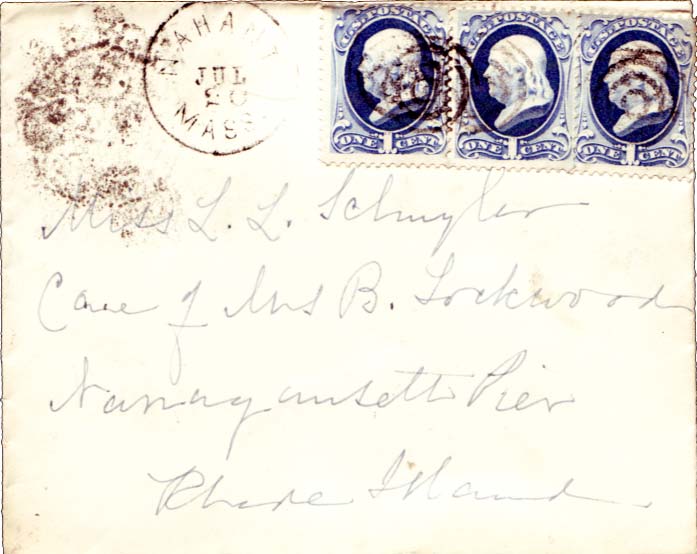 NAHANT
JUL
20
MASS
U.S. POSTAGE
ONE 1 CENT
U.S. POSTAGE
ONE 1 CENT
U.S. POSTAGE
ONE 1 CENT
Miss L. L. Schuyler
Care of Mrs B. Lockwood
Narragansett Pier
Rhode Island